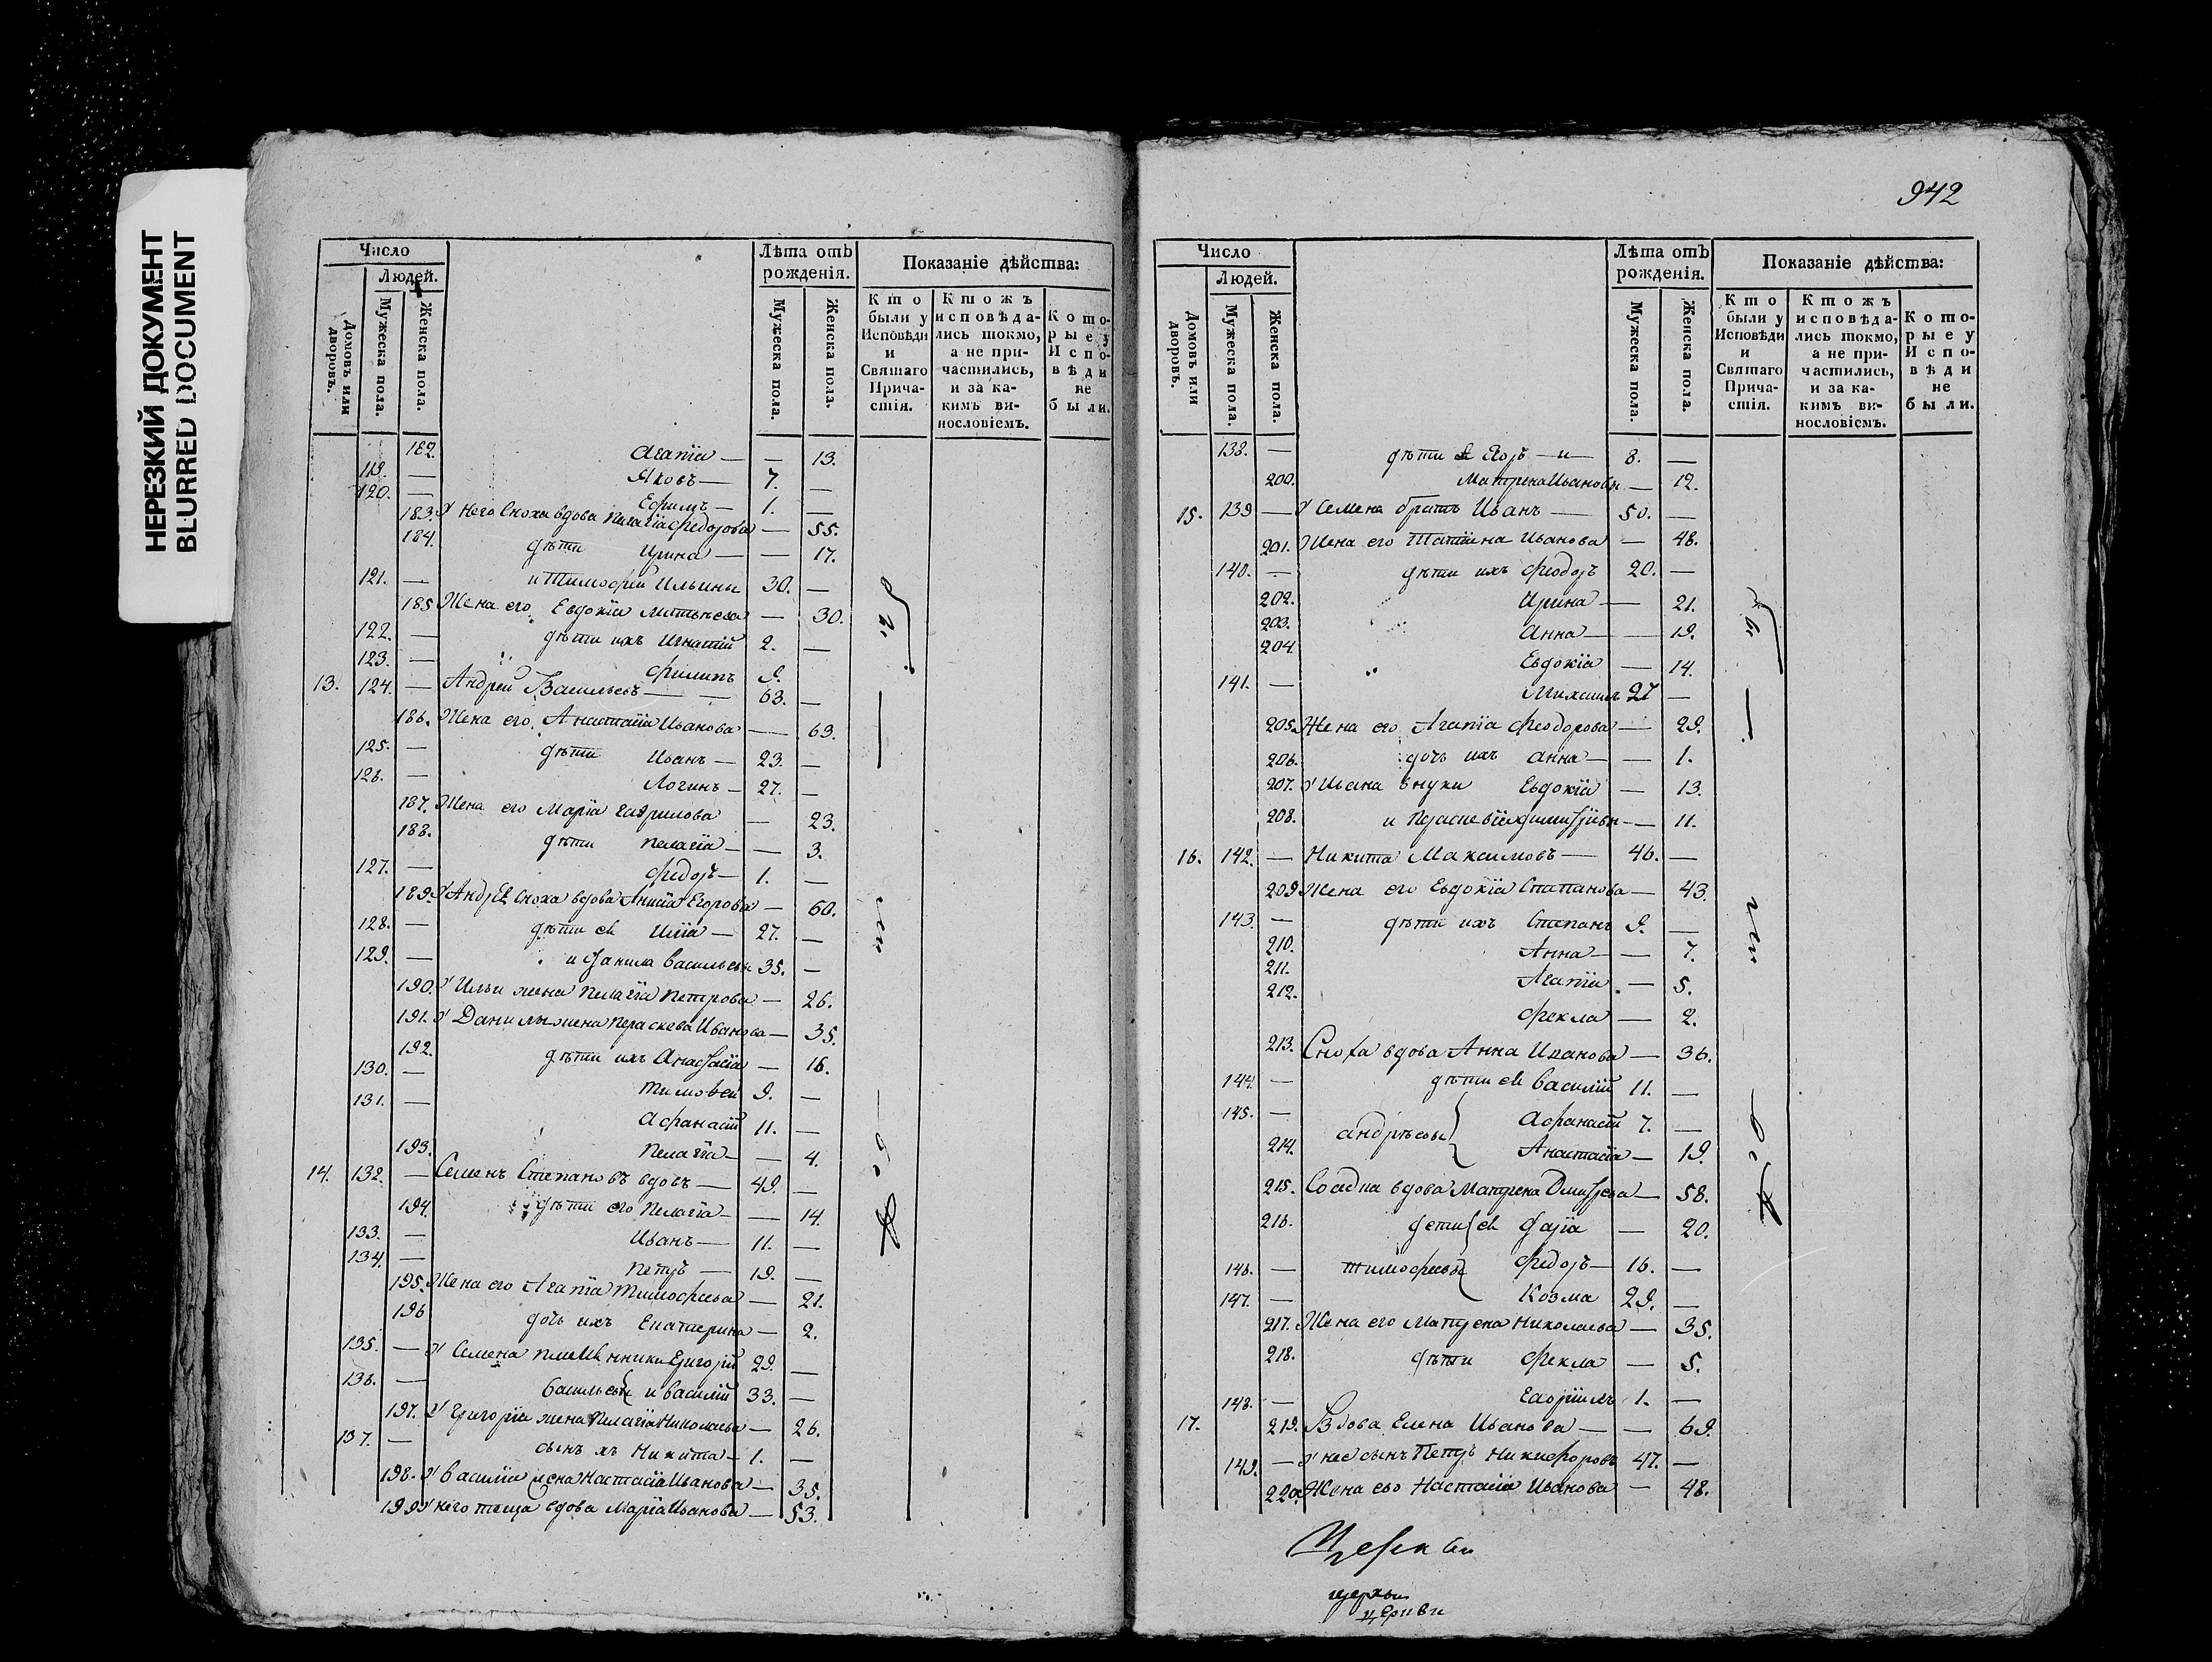 НЕРЕЗКИЙ ДОКУМЕНТ
BLURRED DOCUMENT
Число
Людей.
Домовъ или дворовъ.
Мужеска пола.
Женска пола.
Лѣта отъ рожденія.
Мужеска пола.
Женска пола.
Показаніе дѣйства:
Кто были у Исповѣди и Святаго Причастія.
Ктожъ исповѣдались токмо, а не причастились, и за какимъ винословіемъ.
Которые у Исповѣди не были.
182. Агапіа — — 13.
119. — Яковъ — 7. —
120. — Ефимъ — 1. —
183. У него сноха вдова Пелагіа Федорова — 55.
184. дѣти Ирина — — 17.
121. — и Тимофей Ильины 30. —
185 Жена его Евдокіа — 30.
122. — дѣти ихъ Игнатій 2. —
123. — Филипъ 9.
13. 124. — Андрей Васильевъ — 63. —
186. Жена его Анастасіа Иванова — 63.
125. — дѣти Иванъ — 23. —
126. — Логинъ — 27. —
187. Жена его Маріа Гаврилова — 23.
188. дѣти Пелагіа — — 3.
127. — Федоръ — 1. —
189. У Андрея сноха вдова Анисіа Егорова — 60.
128. — дѣти ея Иліа — 27. —
129. — и Данила Васильевы 35. —
190. У Ильи жена Пелагіа Петрова — 26.
191. У Данилы жена Параскева Иванова — 35.
192. дѣти ихъ Анастасіа — 16.
130. — Тимофей 9. —
131. — Афанасій 11. —
193. Пелагіа — — 4.
14. 132. — Семенъ Степановъ вдовъ — 49. —
194. дѣти его Пелагіа — — 14.
133. — Иванъ — 11. —
134. — Петръ — 19. —
195. Жена его Агапіа Тимофеева — 21.
196 дочь ихъ Екатерина — 2.
135. — У Семена племянники Григорій 29. —
136. — Васильевы и Василій 33. —
197. У Григоріа жена Пелагіа Николаева — 26.
137. — сынъ ихъ Никита — 1. —
198. У Василіа жена Настасіа Иванова — 35.
199 У него теща вдова Маріа Иванова — 53.
942
Число
Людей.
Домовъ или дворовъ.
Мужеска пола.
Женска пола.
Лѣта отъ рожденія.
Мужеска пола.
Женска пола.
Показаніе дѣйства:
Кто были у Исповѣди и Святаго Причастія.
Ктожъ исповѣдались токмо, а не причастились, и за какимъ винословіемъ.
Которые у Исповѣди не были.
138. — дѣти Егоръ — и — 8. —
200. Матрена Ивановы — 12.
15. 139 — У Семена братъ Иванъ — 50. —
201. Жена его Татіана Иванова — 48.
140. — дѣти ихъ Феодоръ 20. —
202. Ирина — — 21.
203. Анна — — 19.
204. Евдокіа — 14.
141. — Михаилъ 27 —
205. Жена его Агапіа Феодорова — 29.
206. дочь ихъ Анна — — 1.
207. У Ивана внуки Евдокіа — 13.
208. и — 11.
16. 142. — Никита Максимовъ — 46. —
209 Жена его Евдокіа Степанова — 43.
143. — дѣти ихъ Степанъ 9. —
210. Анна — — 7.
211. Агапіа — 5.
212. Фекла — 2.
213. Сноха вдова Анна Иванова — 36.
144. — дѣти ея Василій 11. —
145. — Андрѣевы Афанасій 7. —
214. Анастасіа — 19.
215. вдова Матрена Дмитрева — 58.
216. дети ея Даріа — 20.
146. — Тимофеевы Федоръ — 16. —
147. — Козма 29. —
217. Жена его Матрена Николаева — 35.
218. дѣти Фекла — 5.
148. — Гавріилъ 1. —
17. 219. Вдова Елена Иванова — — 69.
149. — У нее сынъ Петръ Никифоровъ 47. —
220. Жена его Настасіа Иванова — 48.
Церкви
церкви
церкви